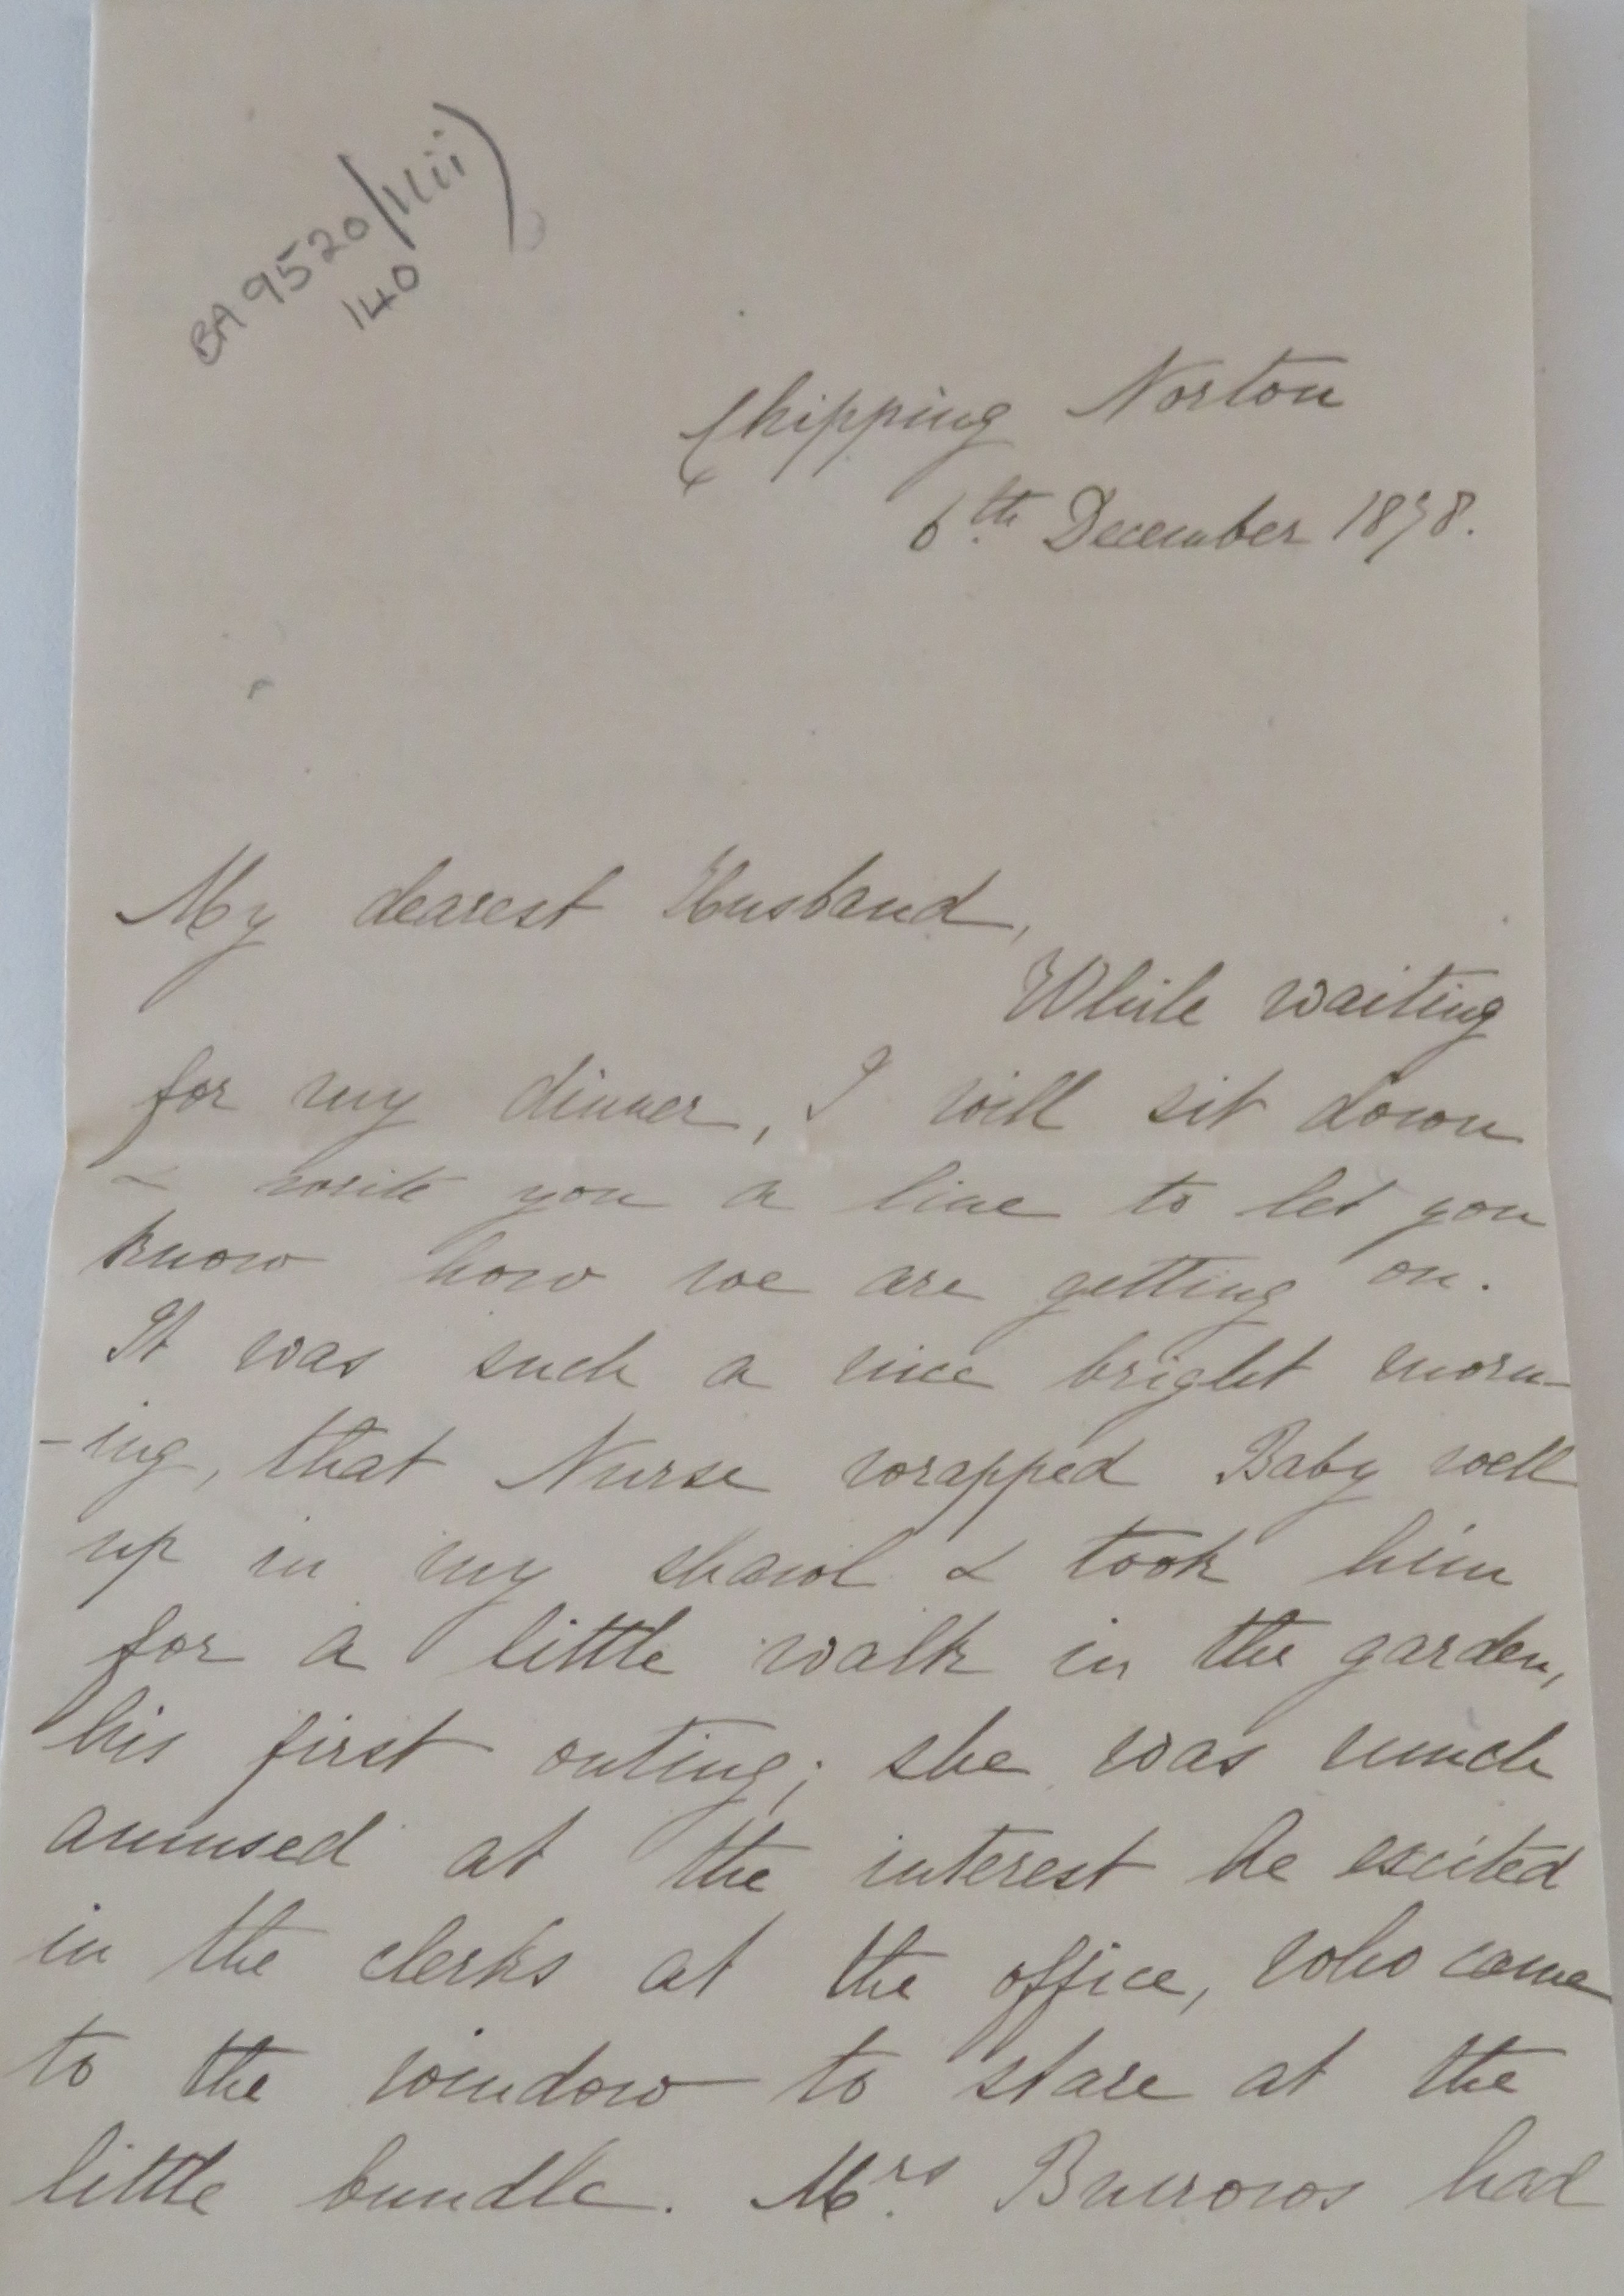 BA 9520/1(ii)
140
Chipping Norton
6th December 1898.
My dearest Husband,
While waiting
for my dinner, I will sit down
& write you a line to let you
know how we are getting on.
It was such a nice bright morn-
-ing, that Nurse wrapped Baby well
up in my shawl & took him
for a little walk in the garden,
his first outing; she was much
amused at the interest he excited
in the clerks at the office, who came
to the window to stare at the
little bundle. Mrs Burrows had